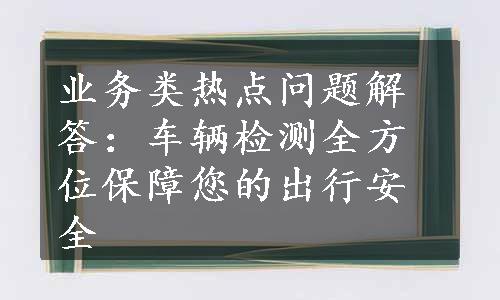 业务类热点问题解
答：车辆检测全方
位保障您的出行安
全